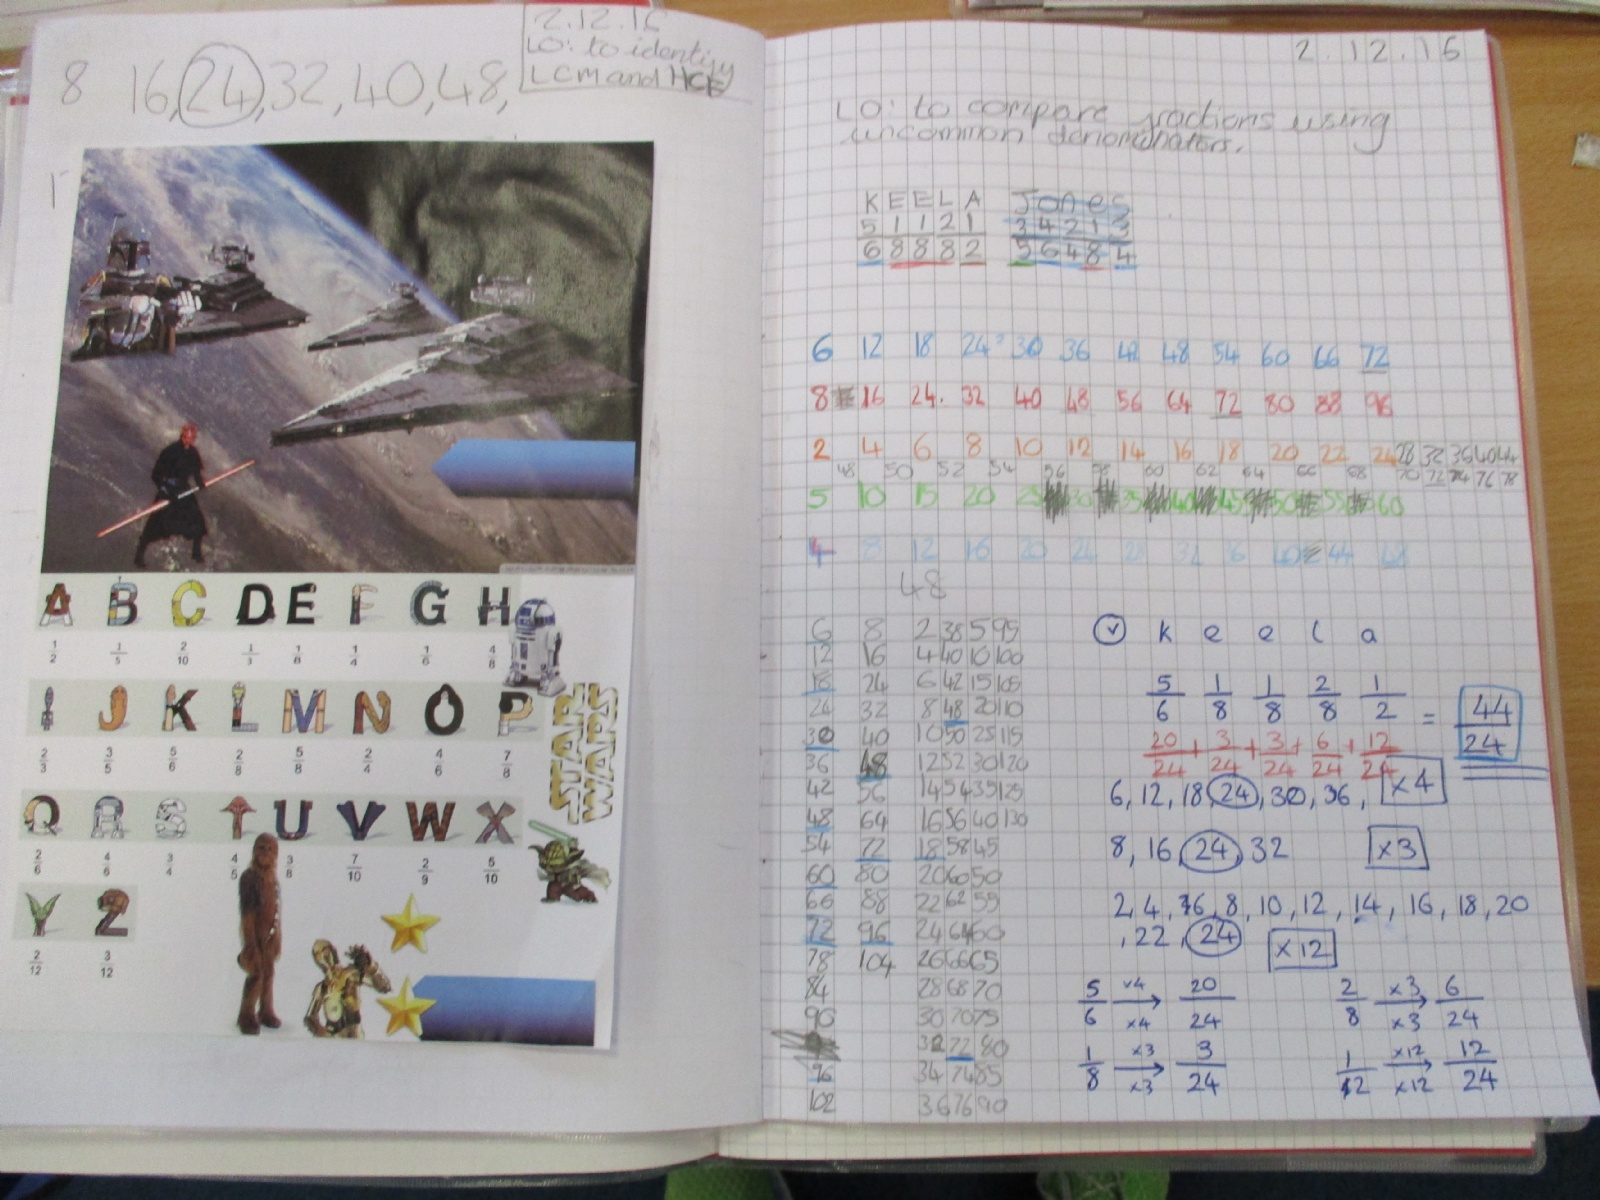 2.12.16
LO: to identify
LCM and HCF
8 16, 24, 32, 40, 48,
A B C D E F G H
1/2 1/5 2/10 1/3 1/8 1/4 1/6 4/8
I J K L M N O P
2/3 3/5 5/6 2/8 5/8 2/4 4/6 7/8
STAR
WARS
Q R S T U V W X
2/6 4/6 3/4 4/5 3/8 7/10 2/9 5/10
Y Z
2/12 3/12
2.12.16
LO: to compare fractions using
uncommon denominators.
KEELA Jones
5 1 1 2 1 3 4 2 1 3
6 8 8 8 2 5 6 4 8 4
6 12 18 24 30 36 42 48 54 60 66 72
8 16 24 32 40 48 56 64 72 80 88 96
2 4 6 8 10 12 14 16 18 20 22 24 28 32 36 40 44
48 50 52 54 56 58 60 62 64 66 68 70 72 74 76 78
5 10 15 20 25 30 35 40 45 50 55 60
4 8 12 16 20 24 28 32 36 40 44 48
48
6 8 2 38 5 95
12 16 4 40 10 100
18 24 6 42 15 105
24 32 8 48 20 110
30 40 10 50 25 115
36 48 12 52 30 120
42 56 14 54 35 125
48 64 16 56 40 130
54 72 18 58 45
60 80 20 60 50
66 88 22 62 55
72 96 24 64 60
78 104 26 66 65
84 28 68 70
90 30 70 75
32 72 80
96 34 74 85
102 36 76 90
k e e l a
5/6 1/8 1/8 2/8 1/2 = 44/24
20/24 + 3/24 + 3/24 + 6/24 + 12/24
6, 12, 18, 24, 30, 36, x4
8, 16, 24, 32 x3
2, 4, 6, 8, 10, 12, 14, 16, 18, 20
, 22, 24 x12
5/6 x4 x4 20/24 2/8 x3 x3 6/24
1/8 x3 x3 3/24 1/2 x12 x12 12/24